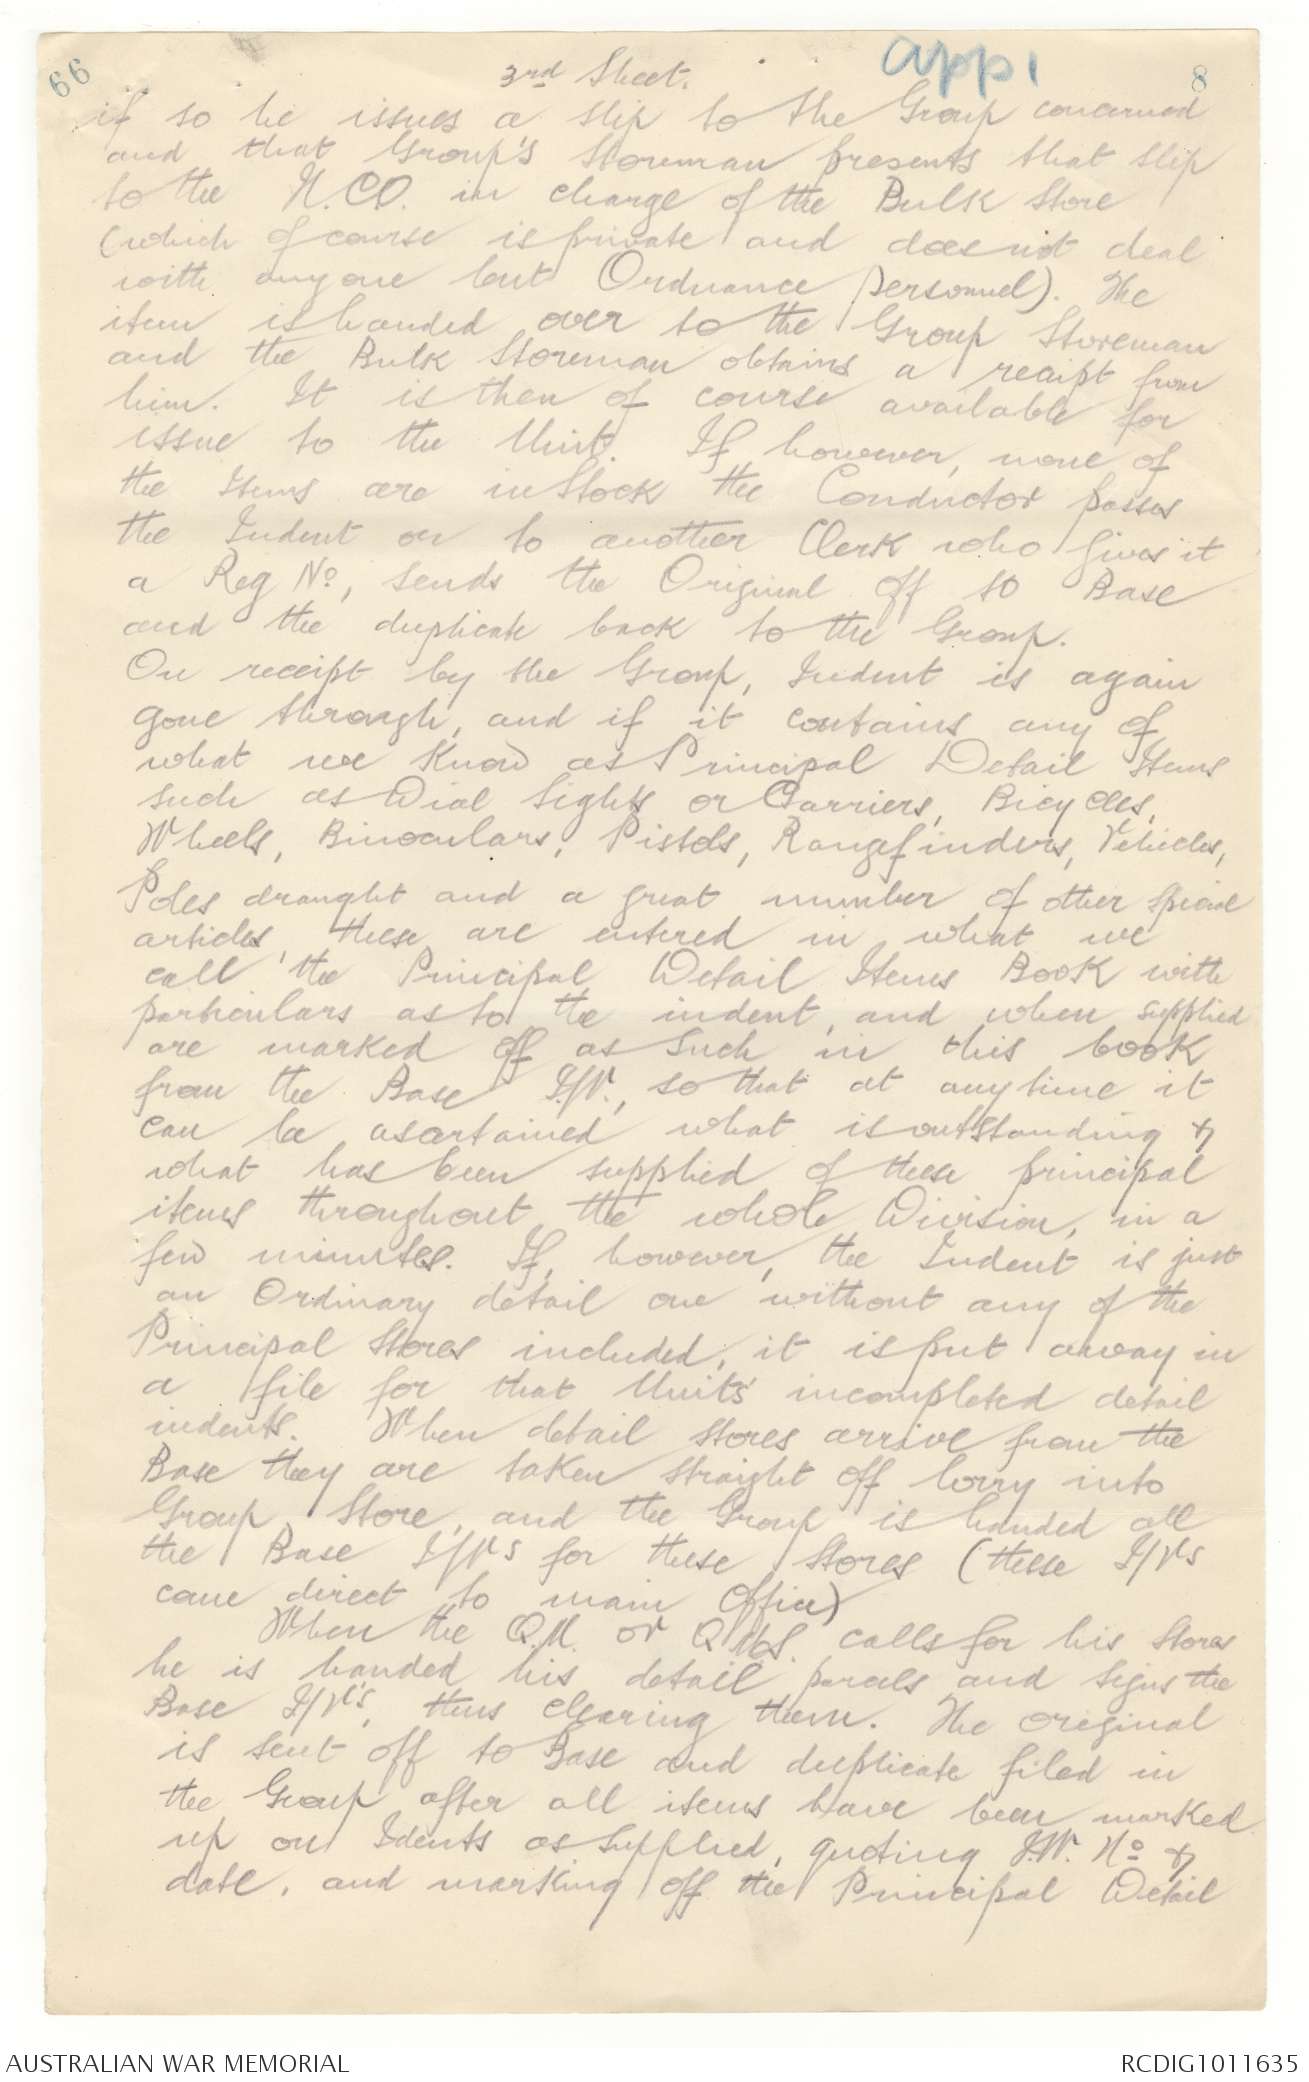 66
3rd Sheet.
App 1
8
if so he issues a slip to the Group concerned
and that Group's Storeman presents that slip
to the N.C.O. in charge of the Bulk Store
(which of course is private and does not deal
with anyone but Ordnance personnel). The
item is handed over to the Group Storeman
and the Bulk Storeman obtains a receipt from
him. It is then of course available for
issue to the Unit. If however, none of
the Items are in Stock the Conductor passes
the Indent on to another Clerk who gives it
a Reg No, sends the Original off to Base
and the duplicate back to the Group.
On receipt by the Group, Indent is again
gone through, and if it contains any of
what we know as Principal Detail Items
such as Dial Sights or Carriers, Bicycles,
Wheels, Binoculars, Pistols, Rangefinders, Vehicles,
Poles draught and a great number of other special
articles, these are entered in what we
call the Principal Detail Items Book with
particulars as to the indent, and when supplied
are marked off as such in this book
from the Base I/V., so that at any time it
can be ascertained what is outstanding &
what has been supplied of these principal
items throughout the whole Division, in a
few minutes. If, however, the Indent is just
an Ordinary detail one without any of the
Principal Stores included, it is put away in
a file for that Units' incompleted detail
indents. When detail stores arrive from the
Base they are taken straight off lorry into
Group Store, and the Group is handed all
the Base I/Vs for these Stores (these I/Vs
came direct to main Office)
When the Q.M. or Q.M.S. calls for his Stores
he is handed his detail parcels and signs the
Base I/V's, thus clearing them. The original
is sent off to Base and duplicate filed in
the Group after all items have been marked
up on Idents as supplied, quoting I.V. No &
date, and marking off the Principal Detail
AUSTRALIAN WAR MEMORIAL
RCDIG1011635